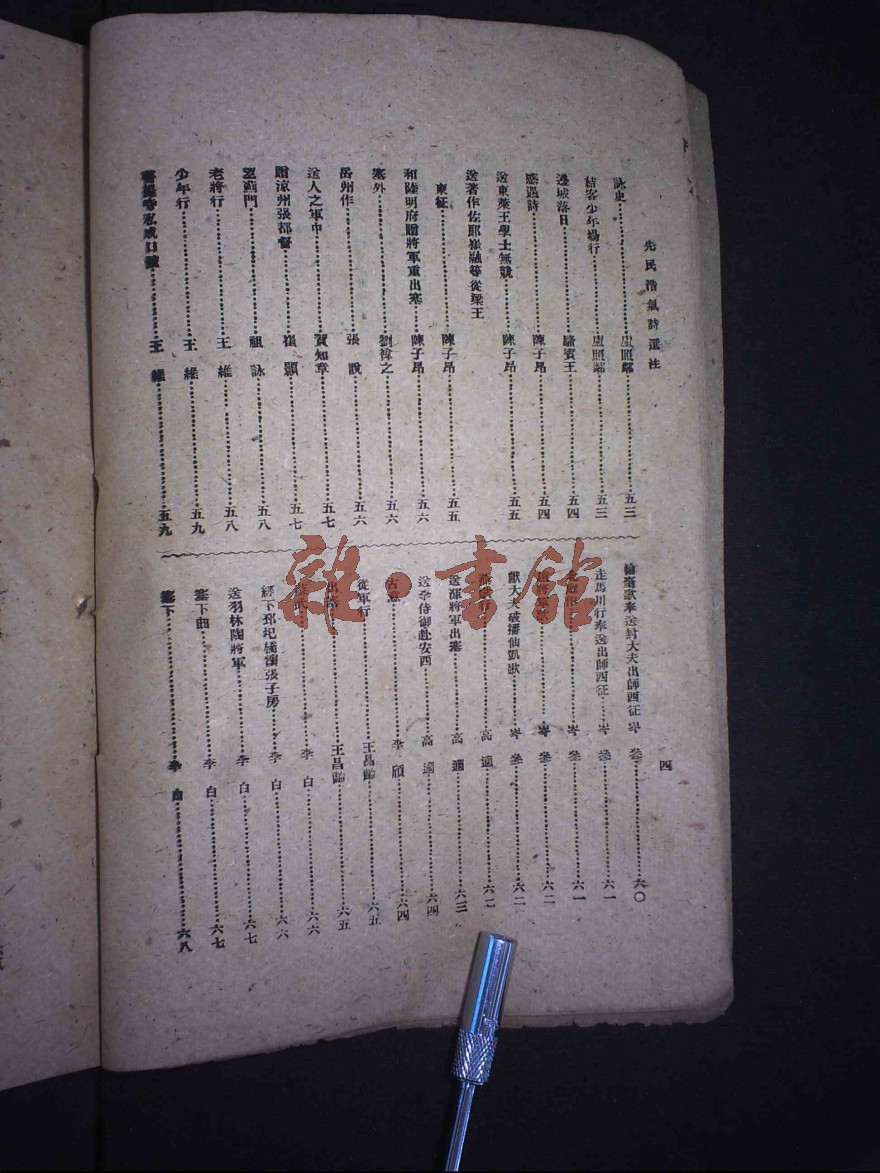 先民浩氣詩選注
詠史……盧照鄰……五三
結客少年場行……盧照鄰……五三
邊城落日……駱賓王……五四
感遇詩……陳子昂……五四
送東萊王學士無競……陳子昂……五五
送著作佐郎崔融等從梁王
東征……陳子昂……五五
和陸明府贈將軍重出塞……陳子昂……五六
塞外……劉禕之……五六
岳州作……張說……五六
送人之軍中……賀知章……五七
贈涼州張都督……崔顥……五七
望薊門……祖詠……五八
老將行……王維……五八
少年行……王維……五九
私成口號……王維……五九
四
輪臺歌奉送封大夫出師西征 岑參……六〇
走馬川行奉送出師西征……岑參……六一
岑參……六一
岑參……六二
獻大夫破播仙凱歌……岑參……六二
高適……六二
送渾將軍出塞……高適……六三
送李侍御赴安西……高適……六四
古意……李頎……六四
從軍行……王昌齡……六五
出塞……王昌齡……六五
六六
經下邳圯橋懷張子房……李白……六六
送羽林陶將軍……李白……六七
塞下曲……李白……六七
塞下……李白……六八
雜·書館